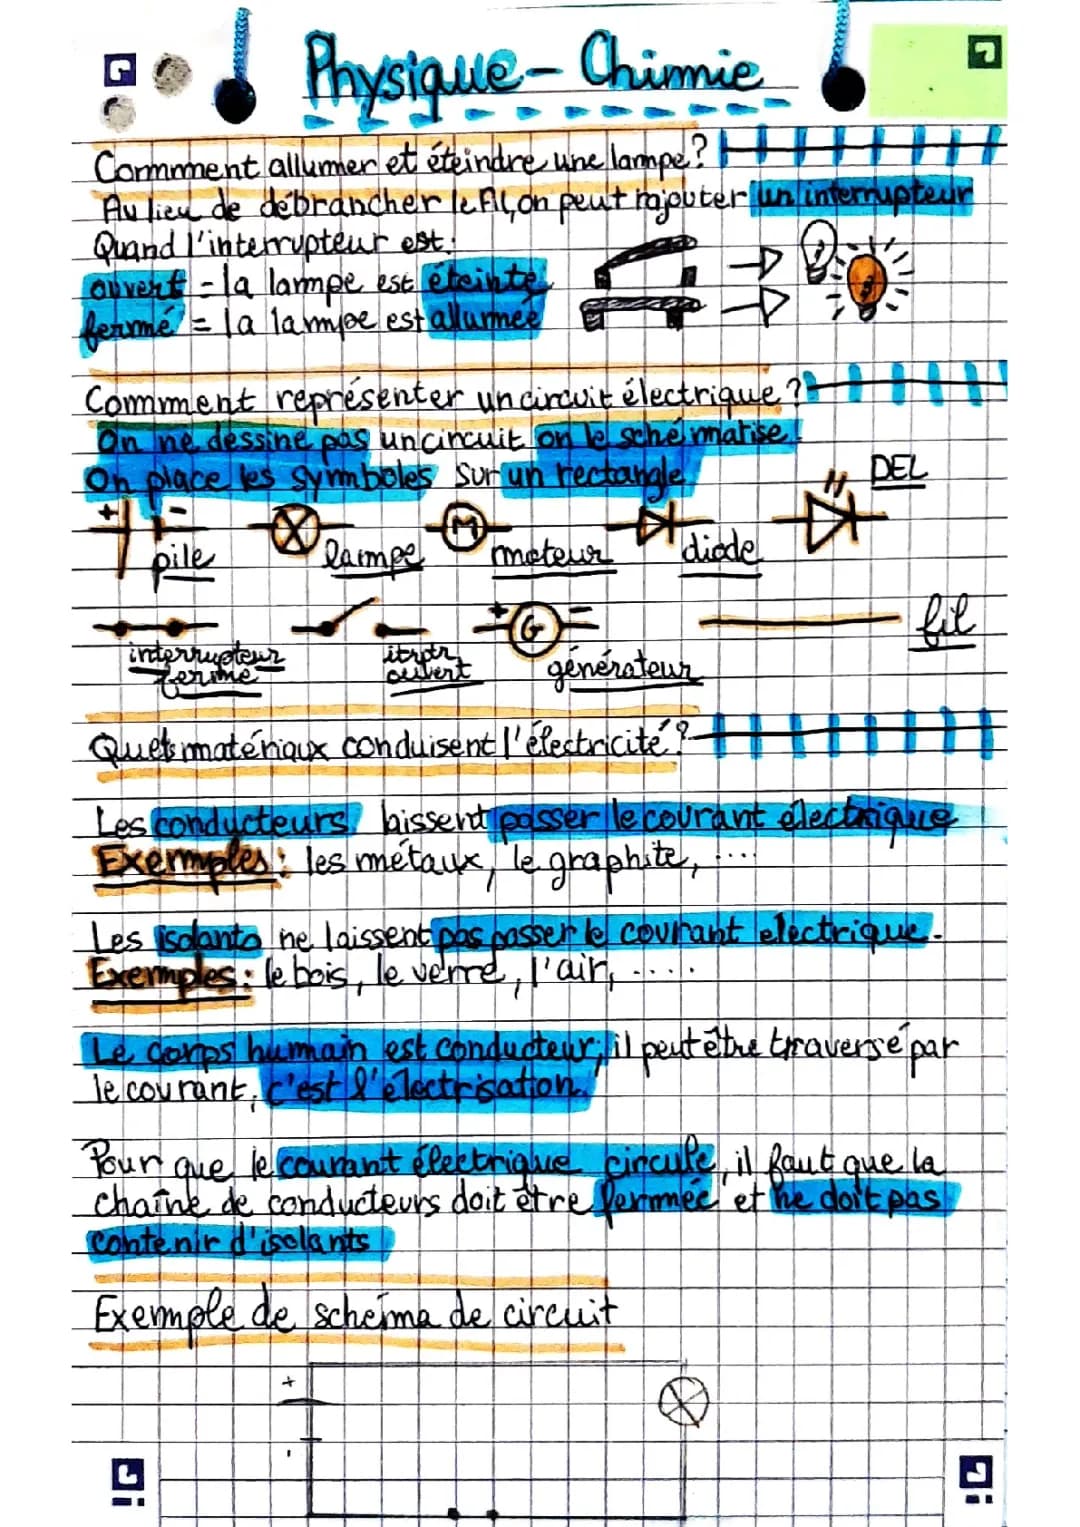 Physique - Chimie
Commment allumer et éteindre une lampe?
Au lieu de débrancher le fil, on peut rajouter un interrupteur
Quand l'interrupteur est:
ouvert = la lampe est éteinte
fermé = la lampe est allumée
Comment représenter un circuit électrique?
On ne dessine pas un circuit on le schématise.
On place les symboles sur un rectangle
DEL
+ -
pile
lampe
M
moteur
diode
interrupteur
fermé
ouvert
+ -
G
générateur
fil
Quels matériaux conduisent l'électricité?
Les conducteurs laissent passer le courant électrique
Exemples: les métaux, le graphite, ....
Les isolants ne laissent pas passer le courant electrique.
Exemples: le bois, le verre, l'air, .....
Le corps humain est conducteur, il peut être traversé par
le courant, c'est l'électrisation.
Pour que le courant électrique circule, il faut que la
chaîne de conducteurs doit être fermée et ne doit pas
contenir d'isolants
Exemple de schéma de circuit
+
-